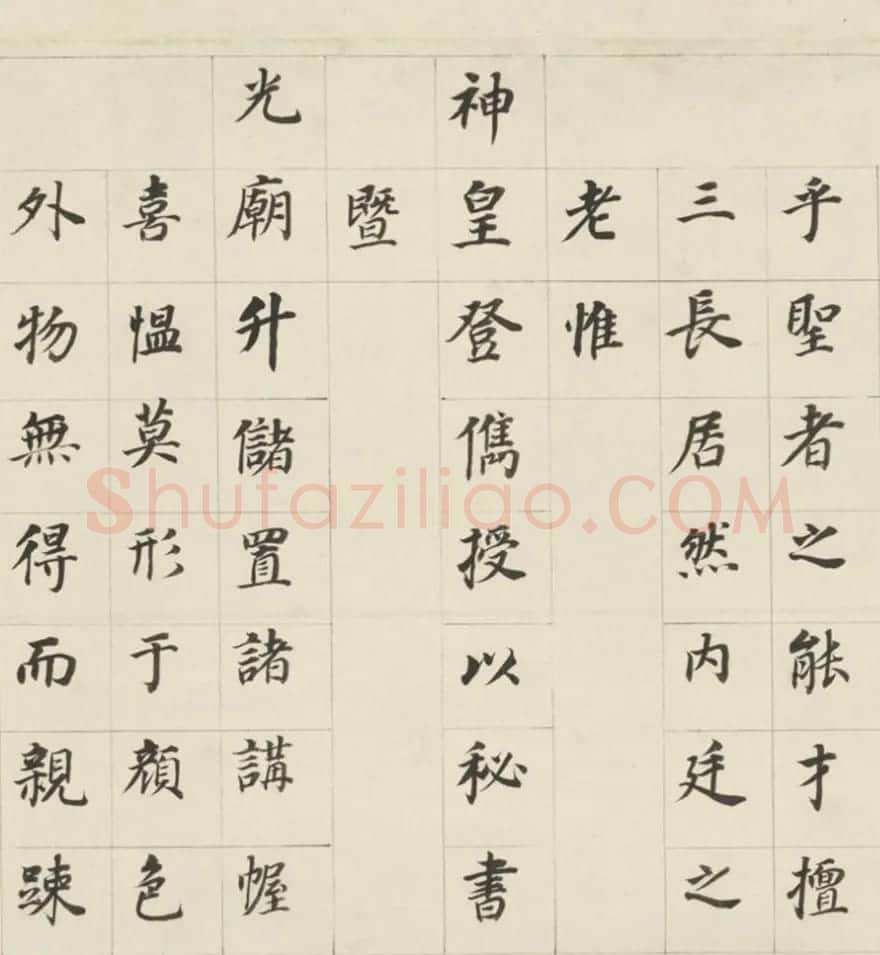 乎聖者之能才擅
三長居然内廷之
老惟
神皇登儁授以秘書
暨
光廟升儲置諸講幄
喜愠莫形于顔色
外物無得而親踈
Shufaziliao.COM